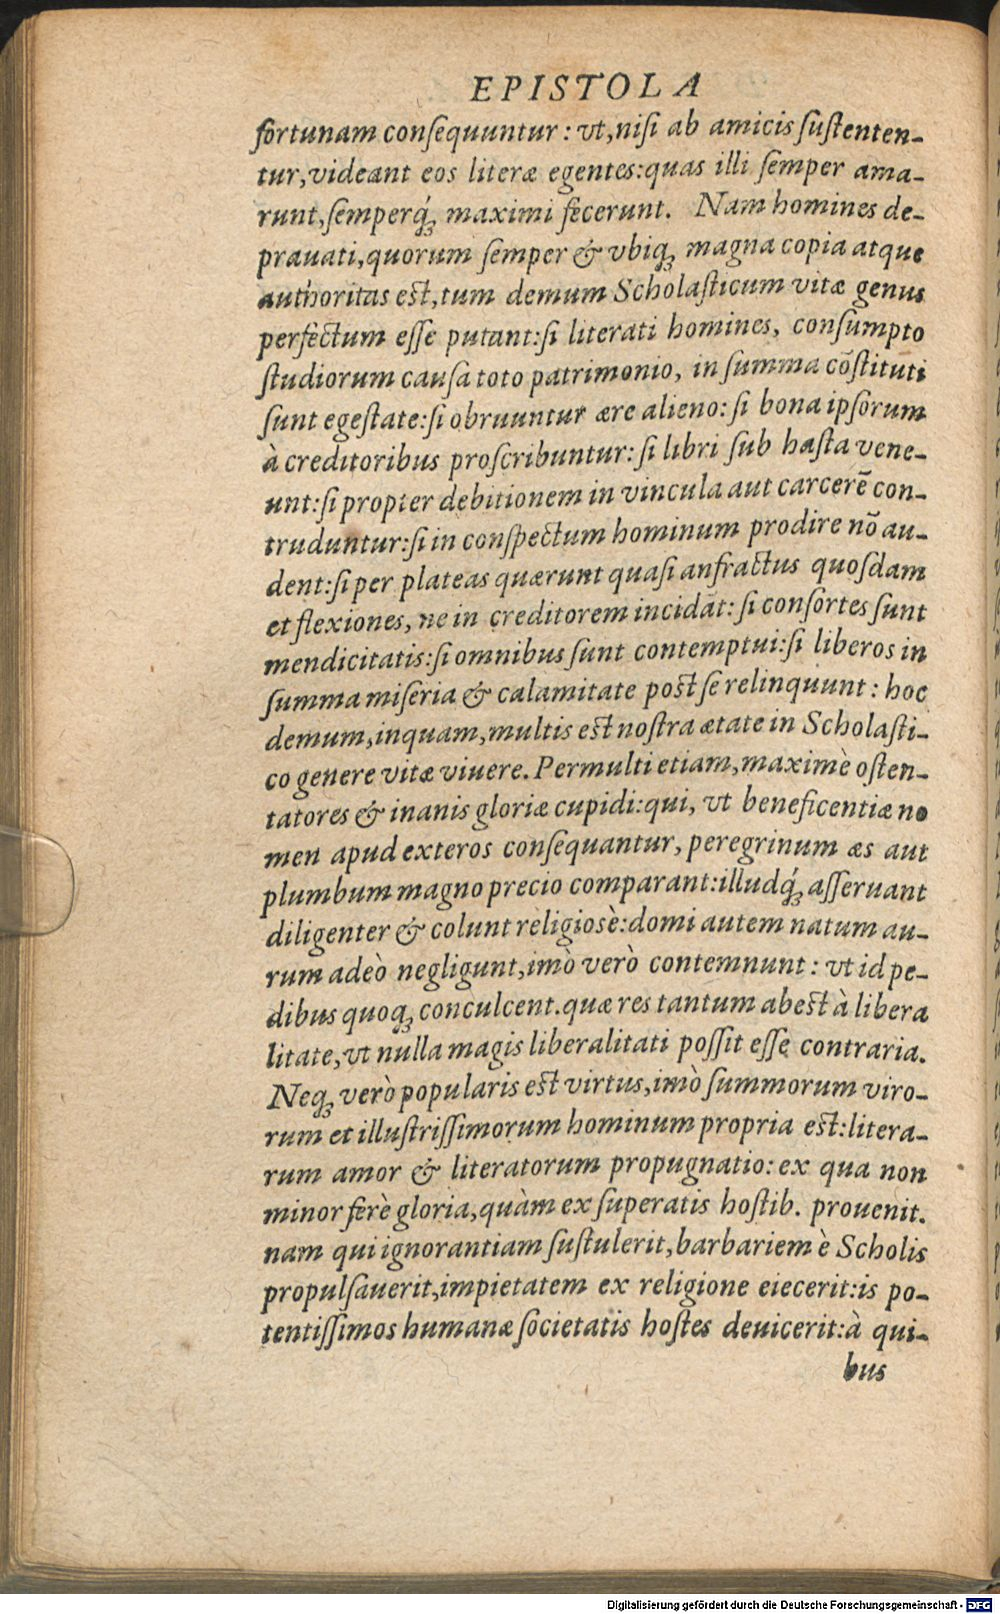 EPISTOLA
fortunam conſequuntur: vt, niſi ab amicis ſuſtenten-
tur, videant eos literæ egentes: quas illi ſemper ama-
runt, ſemperq́ꝫ maximi fecerunt. Nam homines de-
prauati, quorum ſemper & vbiqꝫ magna copia atque
authoritas eſt, tum demum Scholaſticum vitæ genus
perfectum eſſe putant: ſi literati homines, conſumpto
ſtudiorum cauſa toto patrimonio, in ſumma cōſtituti
ſunt egeſtate: ſi obruuntur ære alieno: ſi bona ipſorum
à creditoribus proſcribuntur: ſi libri ſub haſta vene-
unt: ſi propter debitionem in vincula aut carcerē con-
truduntur: ſi in conſpectum hominum prodire nō au-
dent: ſi per plateas quærunt quaſi anfractus quoſdam
et flexiones, ne in creditorem incidāt: ſi conſortes ſunt
mendicitatis: ſi omnibus ſunt contemptui: ſi liberos in
ſumma miſeria & calamitate poſt ſe relinquunt: hoc
demum, inquam, multis eſt noſtra ætate in Scholaſti-
co genere vitæ viuere. Permulti etiam, maximè oſten-
tatores & inanis gloriæ cupidi: qui, vt beneficentiæ no
men apud exteros conſequantur, peregrinum æs aut
plumbum magno precio comparant: illudq́ꝫ aſſeruant
diligenter & colunt religiosè: domi autem natum au-
rum adeò negligunt, imò verò contemnunt: vt id pe-
dibus quoqꝫ conculcent. quæ res tantum abeſt à libera
litate, vt nulla magis liberalitati poſſit eſſe contraria.
Neqꝫ verò popularis eſt virtus, imò ſummorum viro-
rum et illuſtriſſimorum hominum propria eſt: litera-
rum amor & literatorum propugnatio: ex qua non
minor ferè gloria, quàm ex ſuperatis hoſtib. prouenit.
nam qui ignorantiam ſuſtulerit, barbariem è Scholis
propulſauerit, impietatem ex religione eiecerit: is po-
tentiſſimos humanæ ſocietatis hoſtes deuicerit: à qui-
bus
Digitalisierung gefördert durch die Deutsche Forschungsgemeinschaft - DFG